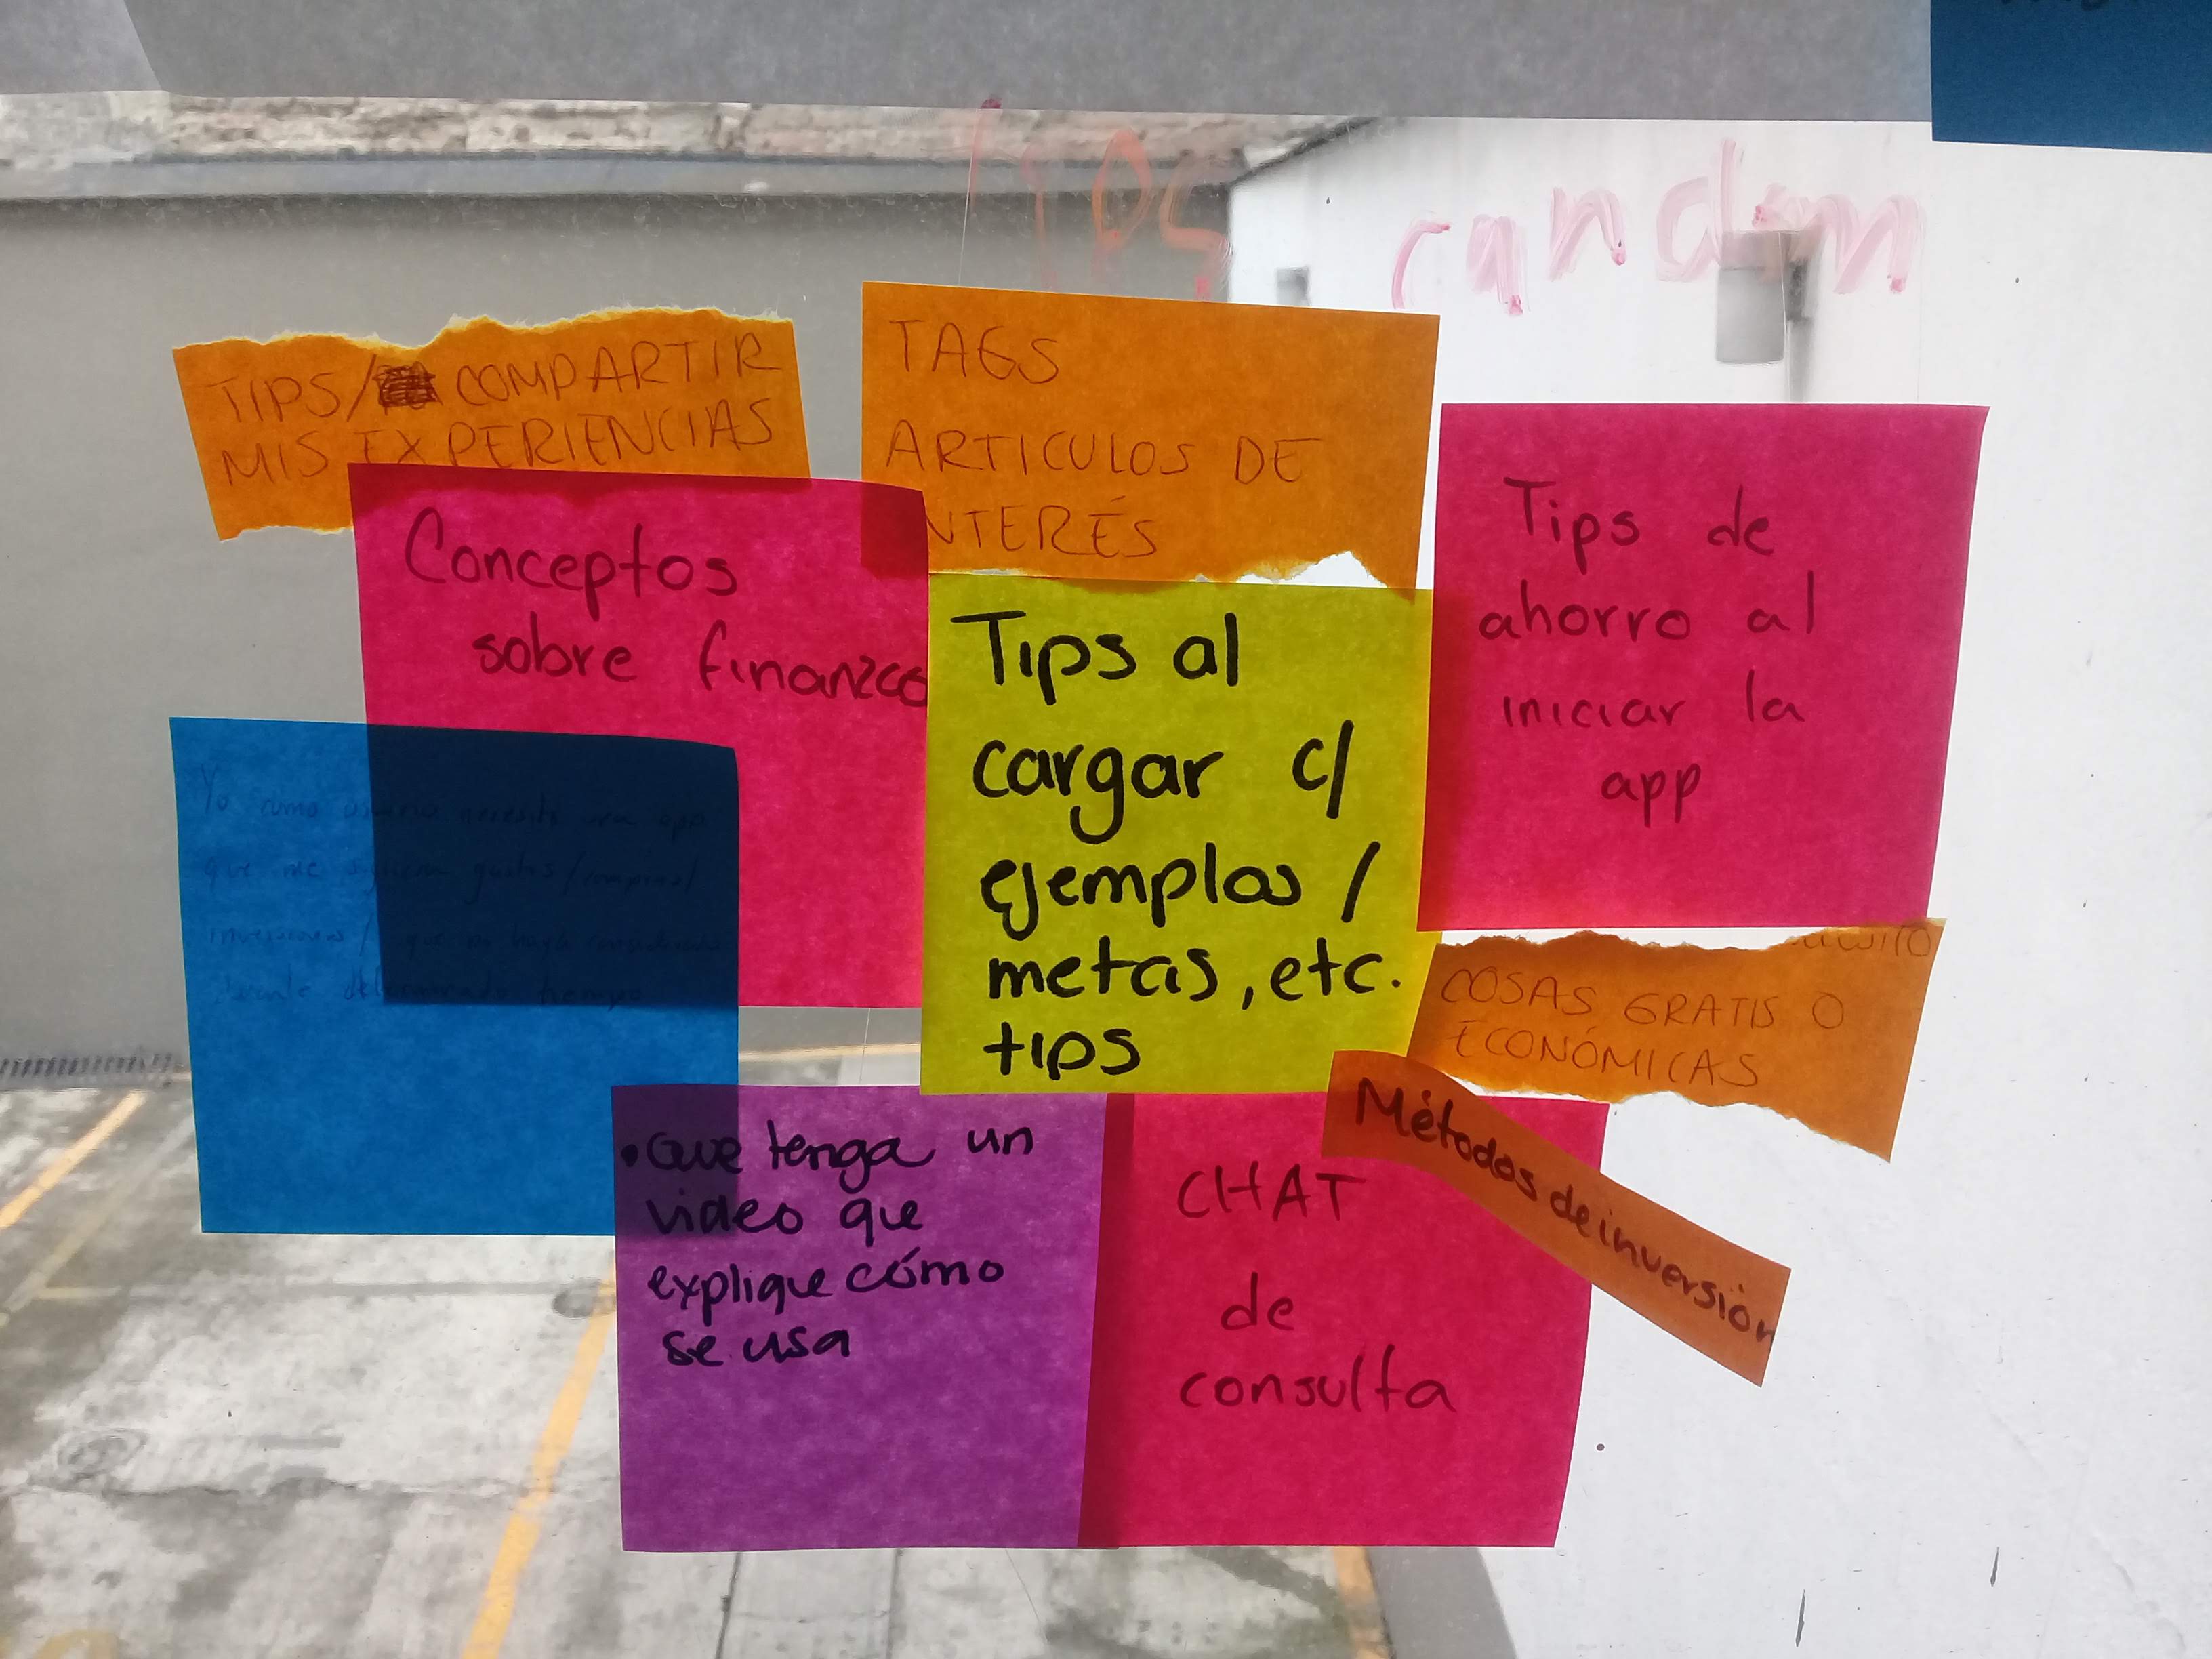 Tips random
TIPS/ COMPARTIR
MIS EXPERIENCIAS
TAGS
ARTICULOS DE
INTERÉS
Conceptos
sobre finanzas
Tips al
cargar c/
ejemplos /
metas, etc.
tips
Tips de
ahorro al
iniciar la
app
Yo como usuario necesito una app
que me sugiera gastos/compras/
inversiones/ que no haya considerado
durante determinado tiempo
COSAS GRATIS O
ECONÓMICAS
Métodos de inversión
• Que tenga un
video que
explique cómo
se usa
CHAT
de
consulta